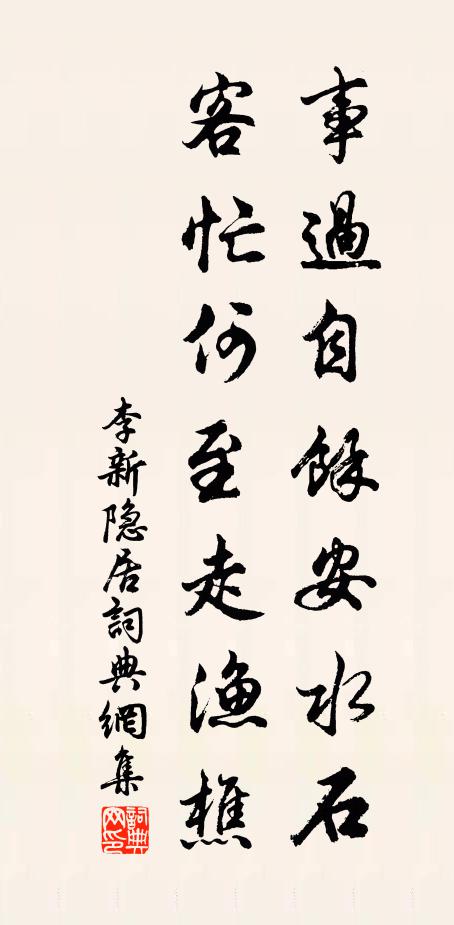 事過自餘安水石
客忙何至走漁樵
李新隐居詞典網集
詞典网印